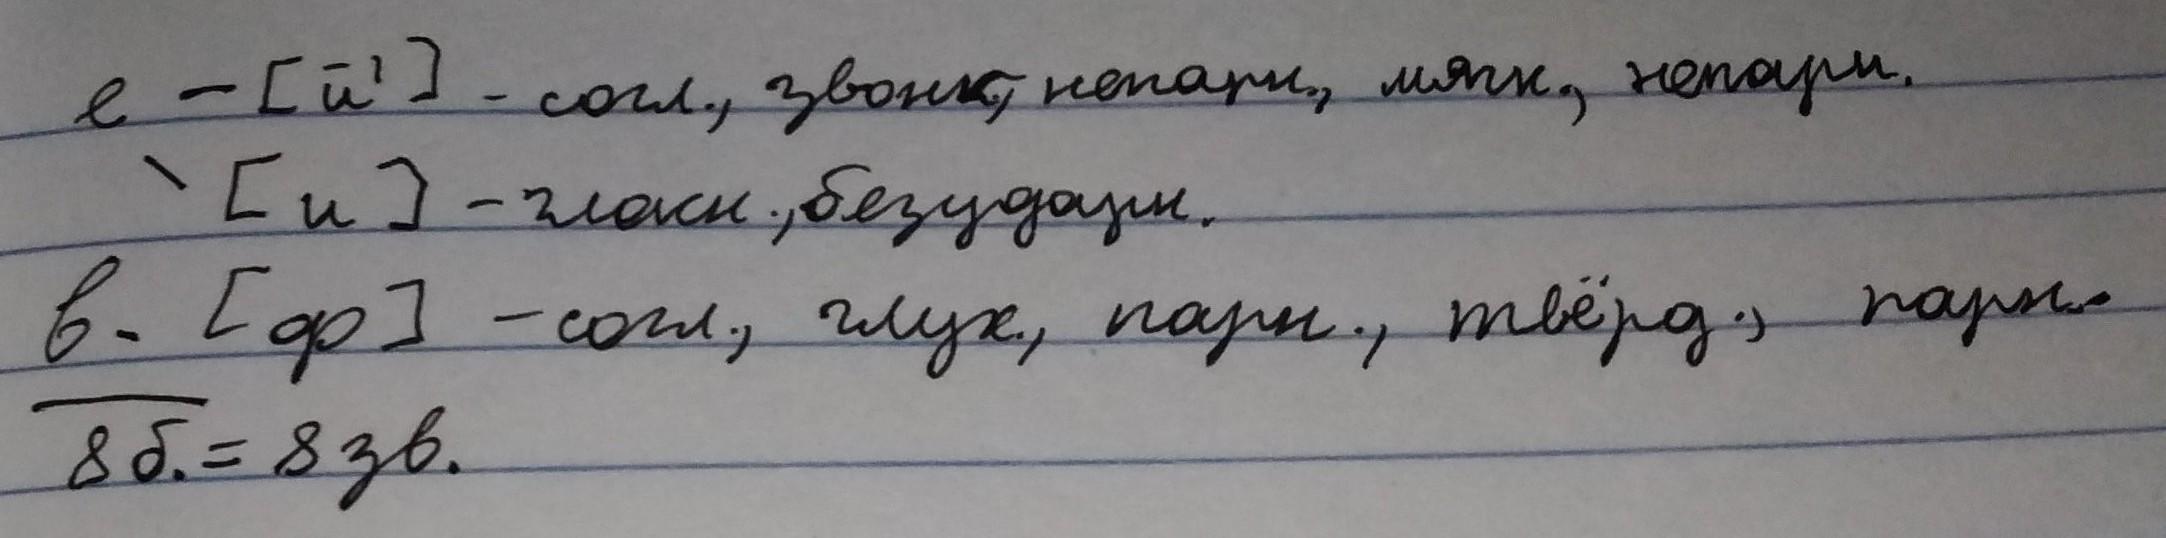 е – [й'] – согл., звонк., непарн., мягк., непарн.
\ [и] – гласн., безударн.
в – [ф] – согл., глух., парн., твёрд., парн.
8 б. = 8 зв.